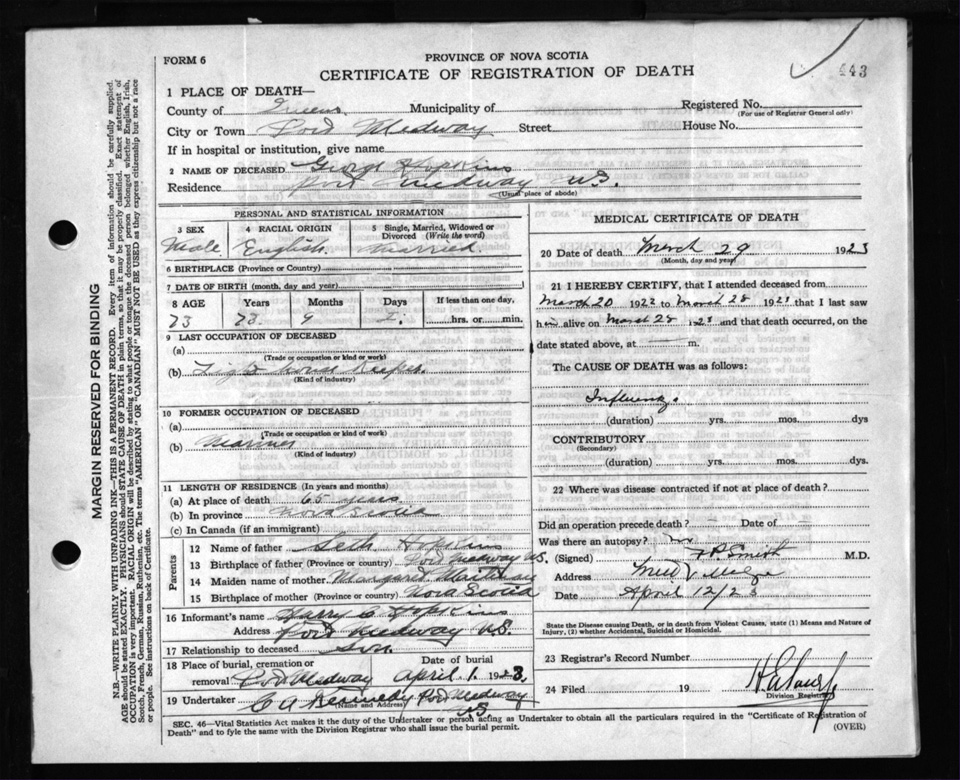 443
FORM 6
PROVINCE OF NOVA SCOTIA
CERTIFICATE OF REGISTRATION OF DEATH
1 PLACE OF DEATH—
County of Queens Municipality of Registered No.
(For use of Registrar General only)
City or Town Port Medway Street House No.
If in hospital or institution, give name
2 NAME OF DECEASED George Hopkins
Residence Port Medway N.S.
(Usual place of abode)
PERSONAL AND STATISTICAL INFORMATION
3 SEX 4 RACIAL ORIGIN 5 Single, Married, Widowed or Divorced (Write the word)
Male English Married
6 BIRTHPLACE (Province or Country)
7 DATE OF BIRTH (month, day and year)
8 AGE Years Months Days If less than one day,
73 73 9 hrs. or min.
9 LAST OCCUPATION OF DECEASED
(a)
(Trade or occupation or kind of work)
(b) Light House Keeper
(Kind of industry)
10 FORMER OCCUPATION OF DECEASED
(a)
(Trade or occupation or kind of work)
(b) Mariner
(Kind of industry)
11 LENGTH OF RESIDENCE (In years and months)
(a) At place of death 65 years
(b) In province Nova Scotia
(c) In Canada (if an immigrant)
Parents
12 Name of father Seth Hopkins
13 Birthplace of father (Province or country) Port Medway N.S.
14 Maiden name of mother Margaret
15 Birthplace of mother (Province or country) Nova Scotia
16 Informant's name Harry C Hopkins
Address Port Medway N.S.
17 Relationship to deceased Son
18 Place of burial, cremation or removal Port Medway Date of burial April 1 1923
19 Undertaker C A Kennedy Port Medway
(Name and Address) N.S.
MEDICAL CERTIFICATE OF DEATH
20 Date of death March 29 1923
(Month, day and year)
21 I HEREBY CERTIFY, that I attended deceased from
March 20 192 to March 28 192 that I last saw
him alive on March 28 192 and that death occurred, on the
date stated above, at — m.
The CAUSE OF DEATH was as follows:
Influenza
(duration) yrs. mos. dys
CONTRIBUTORY
(Secondary)
(duration) yrs. mos. dys.
22 Where was disease contracted if not at place of death?
Did an operation precede death? — Date of —
Was there an autopsy? no
(Signed) Smith M.D.
Address Mill Village
Date April 12/23
State the Disease causing Death, or in death from Violent Causes, state (1) Means and Nature of
Injury, (2) whether Accidental, Suicidal or Homicidal.
23 Registrar's Record Number
24 Filed 19
Division Registrar
SEC. 46—Vital Statistics Act makes it the duty of the Undertaker or person acting as Undertaker to obtain all the particulars required in the "Certificate of Registration of
Death" and to fyle the same with the Division Registrar who shall issue the burial permit. (OVER)
MARGIN RESERVED FOR BINDING
N.B.—WRITE PLAINLY WITH UNFADING INK—THIS IS A PERMANENT RECORD. Every item of information should be carefully supplied.
AGE should be stated EXACTLY. PHYSICIANS should STATE CAUSE OF DEATH in plain terms, so that it may be properly classified. Exact statement of
OCCUPATION is very important. RACIAL ORIGIN will be described by stating to what people or tongue the deceased person belonged whether English, Irish,
Scotch, French, German, Russian, Ruthenian, etc. The terms "AMERICAN" or "CANADIAN" MUST NOT BE USED as they express citizenship but not a race
or people. See instructions on back of Certificate.